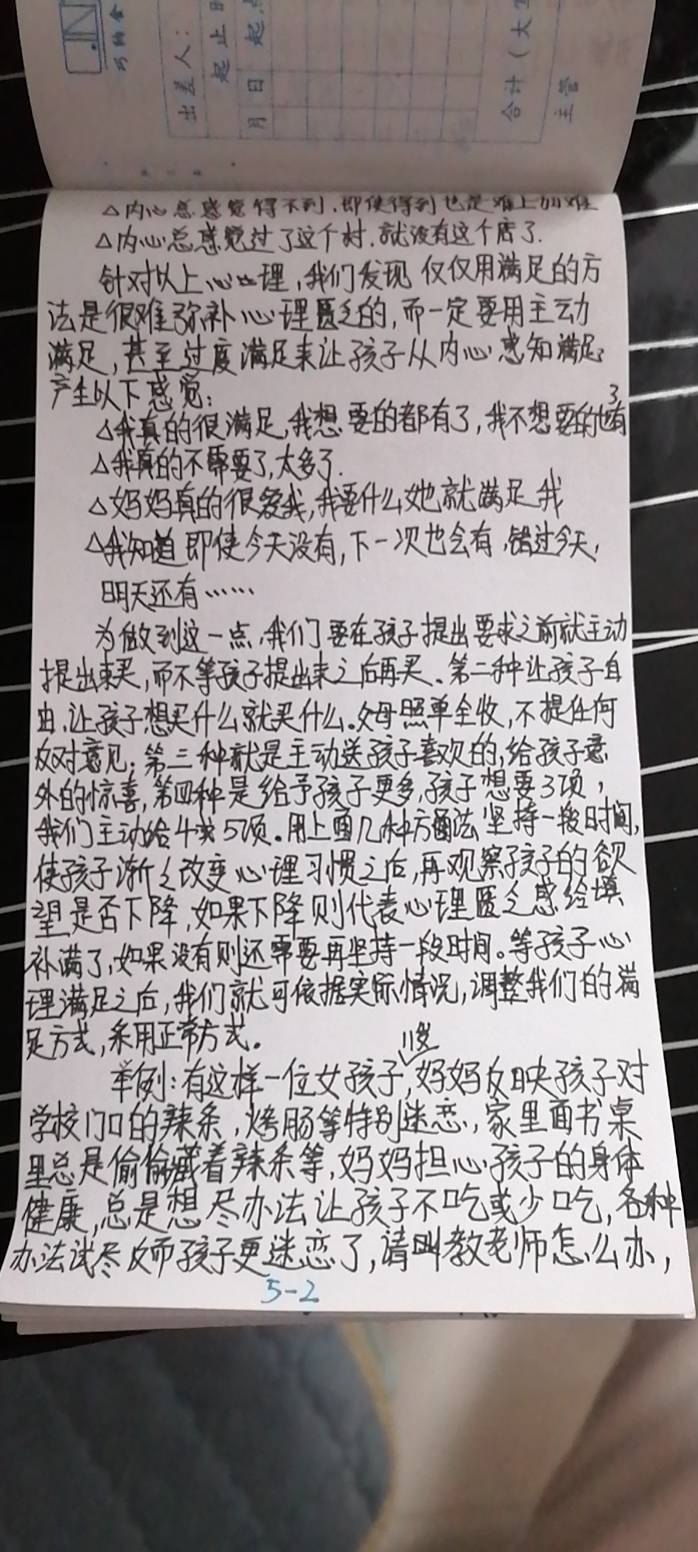 出差人：
起止时
月日起点
合计（大写
主管
△内心总感觉得不到，即使得到也是难上加难
△内心总感觉过了这个村，就没有这个店了．
针对以上心心理，我们发现仅仅用满足的方
法是很难弥补心理匮乏的，而一定要用主动
满足，甚至过度满足来让孩子从内心感知满足
产生以下感觉：
△我真的很满足，我想要的都有了，我不想要的也有
了
△我真的不需要了，太多了．
△妈妈真的很爱我，我要什么她就满足我
△我知道即使今天没有，下一次也会有，错过今天，
明天还有……
为做到这一点，我们要在孩子提出要求之前就主动
提出来买，而不等孩子提出来之后再买。第二种让孩子自
由，让孩子想买什么就买什么。父母照单全收，不提任何
反对意见．第三种就是主动送孩子喜欢的，给孩子意
外的惊喜，第四种是给予孩子更多，孩子想要3项，
我们主动给4或5项。用上面几种方法坚持一段时间，
使孩子渐渐改变心理习惯之后，再观察孩子的欲
望是否下降，如果下降则代表心理匮乏感给填
补满了，如果没有则还需要再坚持一段时间。等孩子心
理满足之后，我们就可依据实际情况，调整我们的满
足方式，采用正常方式。
11岁
举例：有这样一位女孩子，妈妈反映孩子对
学校门口的辣条，烤肠等特别迷恋，家里面书桌
里总是偷偷藏着辣条等，妈妈担心孩子的身体
健康，总是想尽办法让孩子不吃或少吃，各种
办法试尽反而孩子更迷恋了，请叫教老师怎么办，
5-2